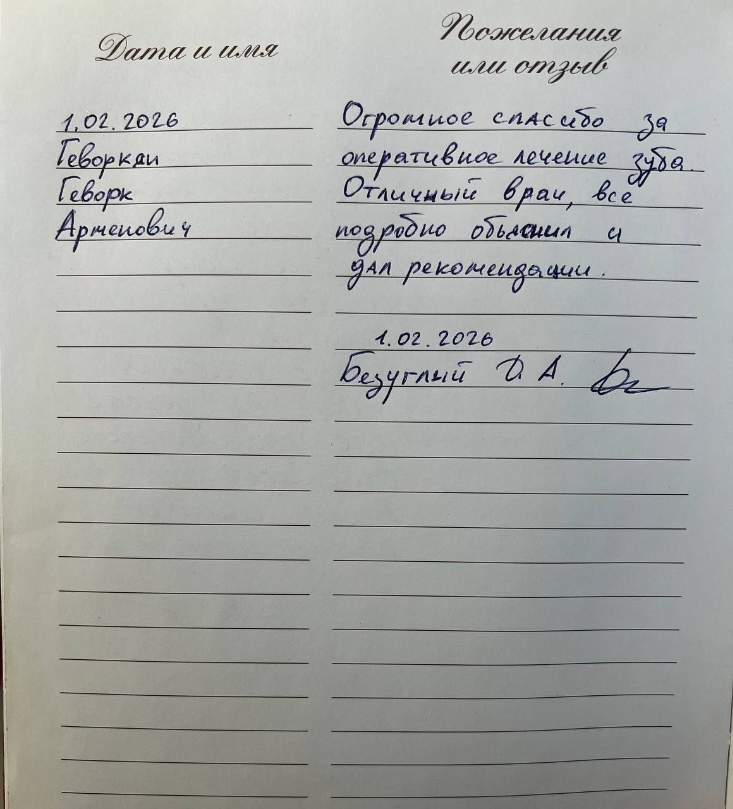 Дата и имя
Пожелания
или отзыв
1.02.2026
Геворкян
Геворк
Арменович
Огромное спасибо за
оперативное лечение зуба.
Отличный врач, всё
подробно объяснил и
дал рекомендации.
1.02.2026
Безуглый Д. А.